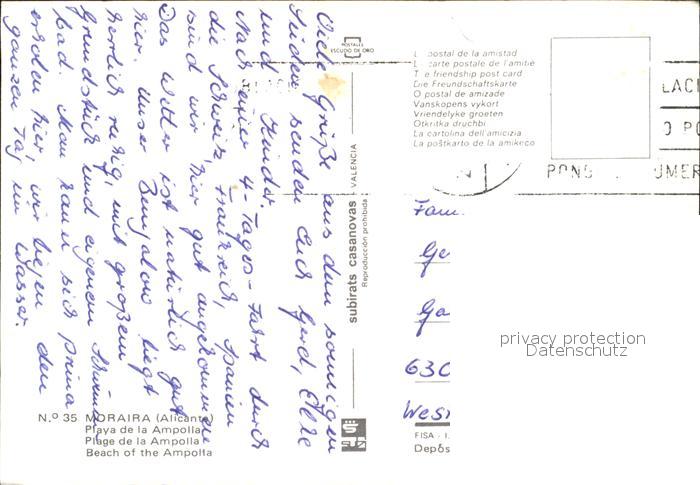 Viele Grüße aus dem sonnigen
Süden senden Euch Gerd, Elke
und Kinder.
Nach einer 4-Tages-Fahrt durch
die Schweiz, Frankreich, Spanien
sind wir hier gut angekommen
Das Wetter ist natürlich gut
hier. Unser Bungalow liegt
herrlich ruhig, mit großem
Grundstück und eigenem Schwimm
bad. Man kann sich prima
erholen hier, wir liegen den
ganzen Tag im Wasser.
N.º 35 MORAIRA (Alicante)
Playa de la Ampolla
Plage de la Ampolla
Beach of the Ampolla
POSTALES
ESCUDO DE ORO
subirats casanovas - VALENCIA
Reproducción prohibida
La postal de la amistad
La carte postale de l'amitié
The friendship post card
Die Freundschaftskarte
O postal de amizade
Vanskopens vykort
Vriendelyke groeten
Otkritka druchbi
La cartolina dell'amicizia
La poŝtkarto de la amikeco
LACI
O PO
PONG UMER
Fam.
Ge
Ga
630
Wes
privacy protection
Datenschutz
FISA - I.
Depós